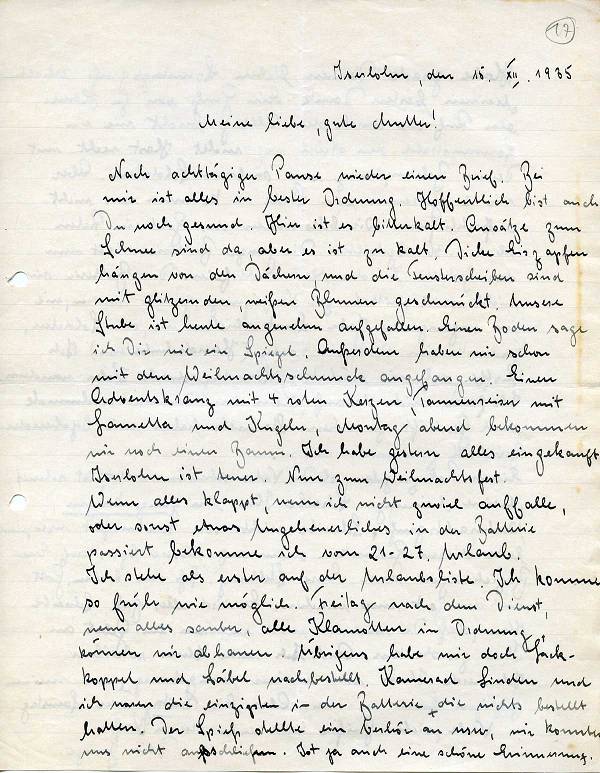 17
Iserlohn, den 15. XII. 1935
Meine liebe, gute Mutter!
Nach achttägiger Pause wieder einen Brief. Bei
mir ist alles in bester Ordnung. Hoffentlich bist auch
Du noch gesund. Hier ist es bitterkalt. Ansätze zum
Schnee sind da, aber es ist zu kalt. Dicke Eiszapfen
hängen von den Dächern, und die Fensterscheiben sind
mit glitzernden, weißen Blumen geschmückt. Unsere
Stube ist heute angenehm aufgefallen. Einen Boden sage
ich Dir wie ein Spiegel. Außerdem haben wir schon
mit dem Weihnachtsschmuck angefangen. Einen
Adventskranz mit 4 roten Kerzen, Tannenreiser mit
Lametta und Kugeln, Montag abend bekommen
wir noch einen Baum. Ich habe gestern alles eingekauft
Iserlohn ist teuer. Nun zum Weihnachtsfest.
Wenn alles klappt, wenn ich nicht zuviel auffalle,
oder sonst etwas Ungeheuerliches in der Batterie
passiert bekomme ich vom 21-27. Urlaub.
Ich stehe als erster auf der Urlaubsliste. Ich komme
so früh wie möglich. Freitag nach dem Dienst,
wenn alles sauber, alle Klamotten in Ordnung,
können wir abhauen. Übrigens habe wir doch
koppel und Säbel nachbestellt. Kamerad Linden und
ich waren die einzigsten in der Batterie die nichts bestellt
hatten. Der Spieß stellte ein Verhör an usw, wir konnten
uns nicht ausschließen. Ist ja auch eine schöne Erinnerung.